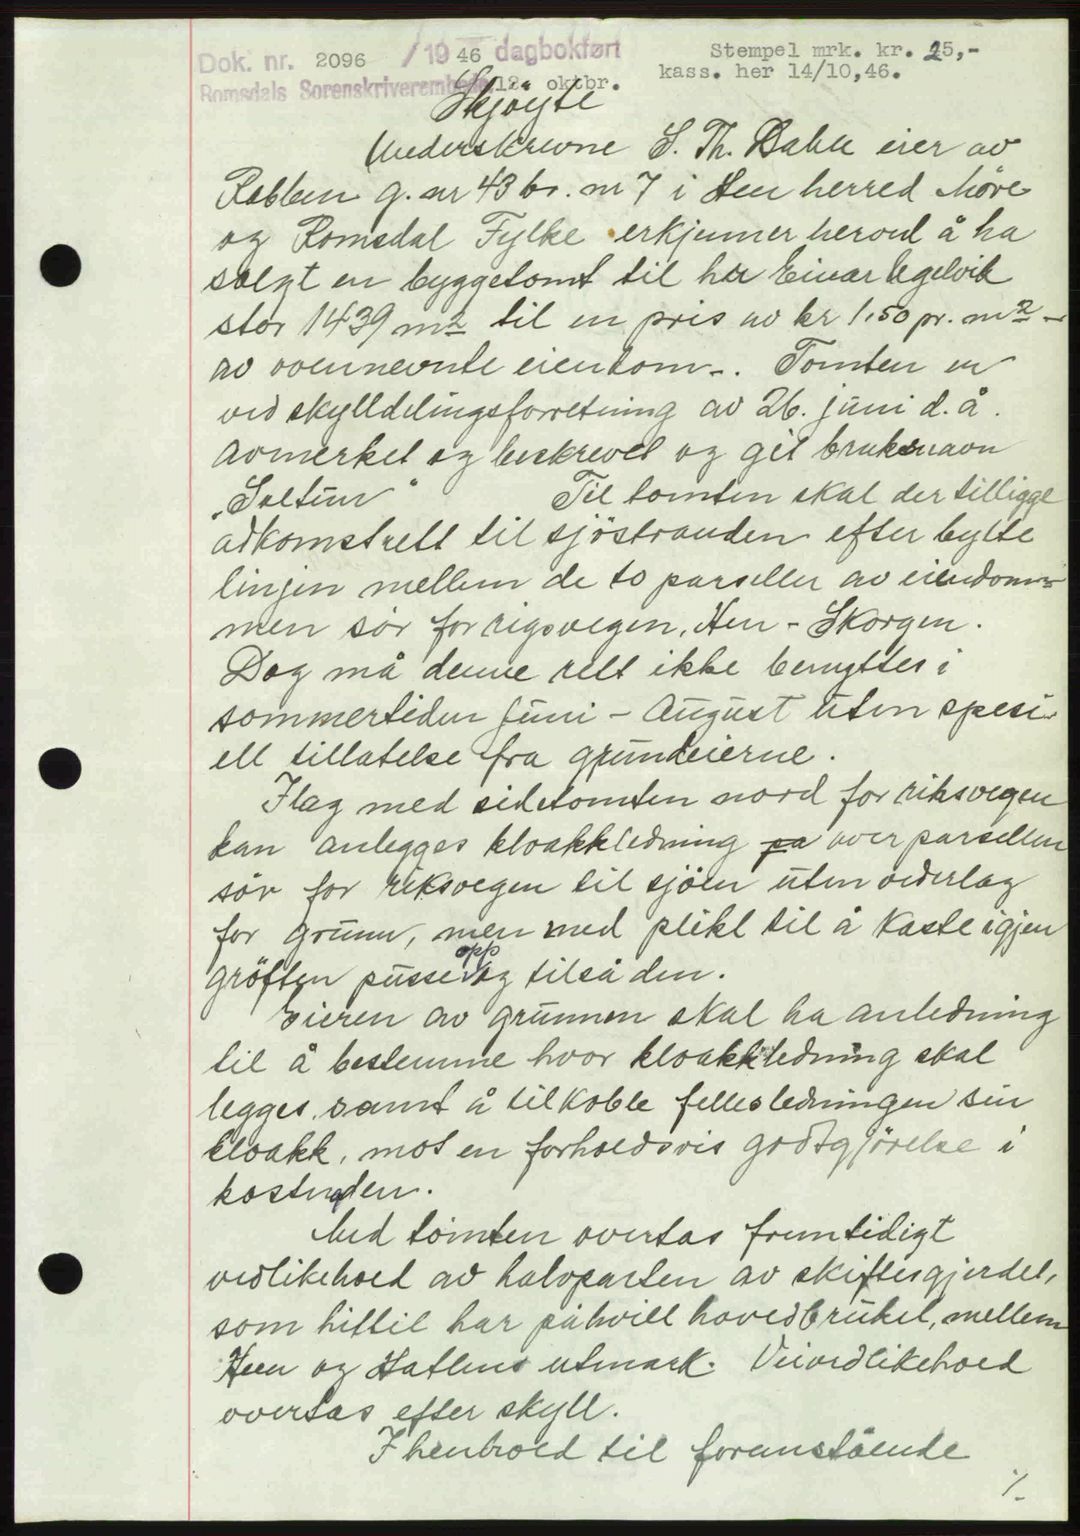 Dok. nr. 2096 /19 46 dagbokført
Stempel mrk. kr. 25,-
Romsdals Sorenskriverembede 12. oktbr.
kass. her 14/10,46.
Skjöyte
Underskrevne S. Th. Dahle eier av
Rabben g. nr 43 br. nr 7 i Hen herred Möre
og Romsdal Fylke erkjenner herved å ha
solgt en byggetomt til hr Einar
stor 1439 m2 til en pris av kr 1.50 pr. m2 -
av ovennevnte eiendom-. Tomten er
ved skylldelingsforretning av 26. juni d. å.
avmerket og beskrevet og git bruksnavn
„Soltun" Til tomten skal der tilligge
adkomstrett til sjöstranden efter bytte
linjen mellem de to parseller av eiendom-
men sör for rigsvegen, Hen - Skorgen.
Dog må denne rett ikke benyttes i
sommertiden juni - August uten spesi-
ell tillatelse fra grunneierne.
I lag med sidetomten nord for riksvegen
kan anlegges kloakkledning pa over parsellen
sör for riksvegen til sjöen uten vederlag
for grunn, men med plikt til å kaste igjen
gröften pusse opp og tilså den.
Eieren av grunnen skal ha anledning
til å bestemme hvor kloakkledning skal
legges samt å tilkoble fellesledningen sin
kloakk, mot en forholdsvis godtgjörelse i
kostnaden.
Med tomten overtas fremtidigt
vedlikehold av halvparten av skiftesgjerdet,
som hittil har påhvilt hovedbruket, mellem
Hen og Hatlens utmark. Veivedlikehold
overtas efter skyll.
I henhold til foranstående
%